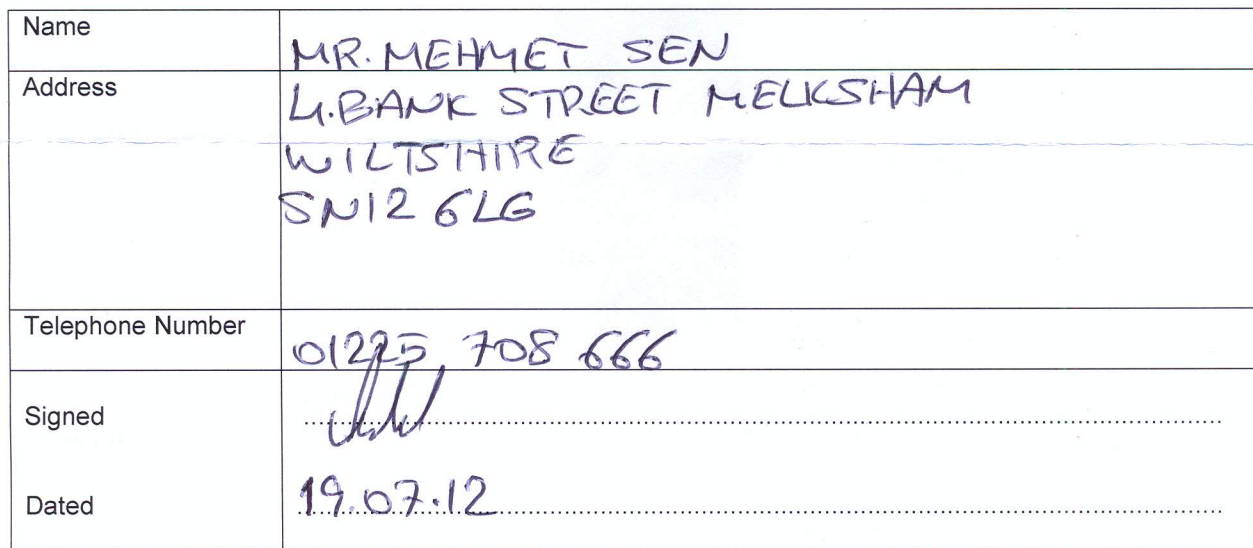 Name
MR. MEHMET SEN
Address
4. BANK STREET MELKSHAM
WILTSHIRE
SN12 6LG
Telephone Number
01225 708 666
Signed
Dated
19.07.12